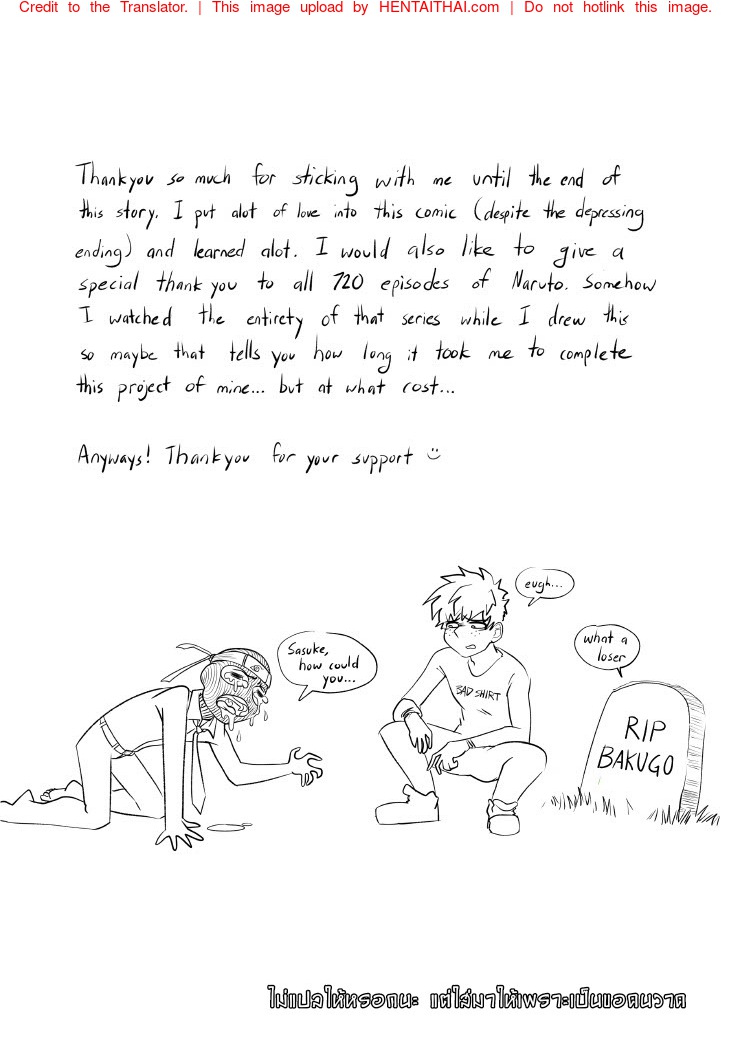 Credit to the Translator. | This image upload by HENTAITHAI.com | Do not hotlink this image.
Thankyou so much for sticking with me until the end of
this story. I put alot of love into this comic (despite the depressing
ending) and learned alot. I would also like to give a
special thank you to all 720 episodes of Naruto. Somehow
I watched the entirety of that series while I drew this
so maybe that tells you how long it took me to complete
this project of mine... but at what cost...
Anyways! Thankyou for your support :)
eugh...
Sasuke,
how could
you...
what a
loser
BAD SHIRT
RIP
BAKUGO
ไม่แปลให้หรอกนะ แต่ใส่มาให้เพราะเป็นแอดนวาด